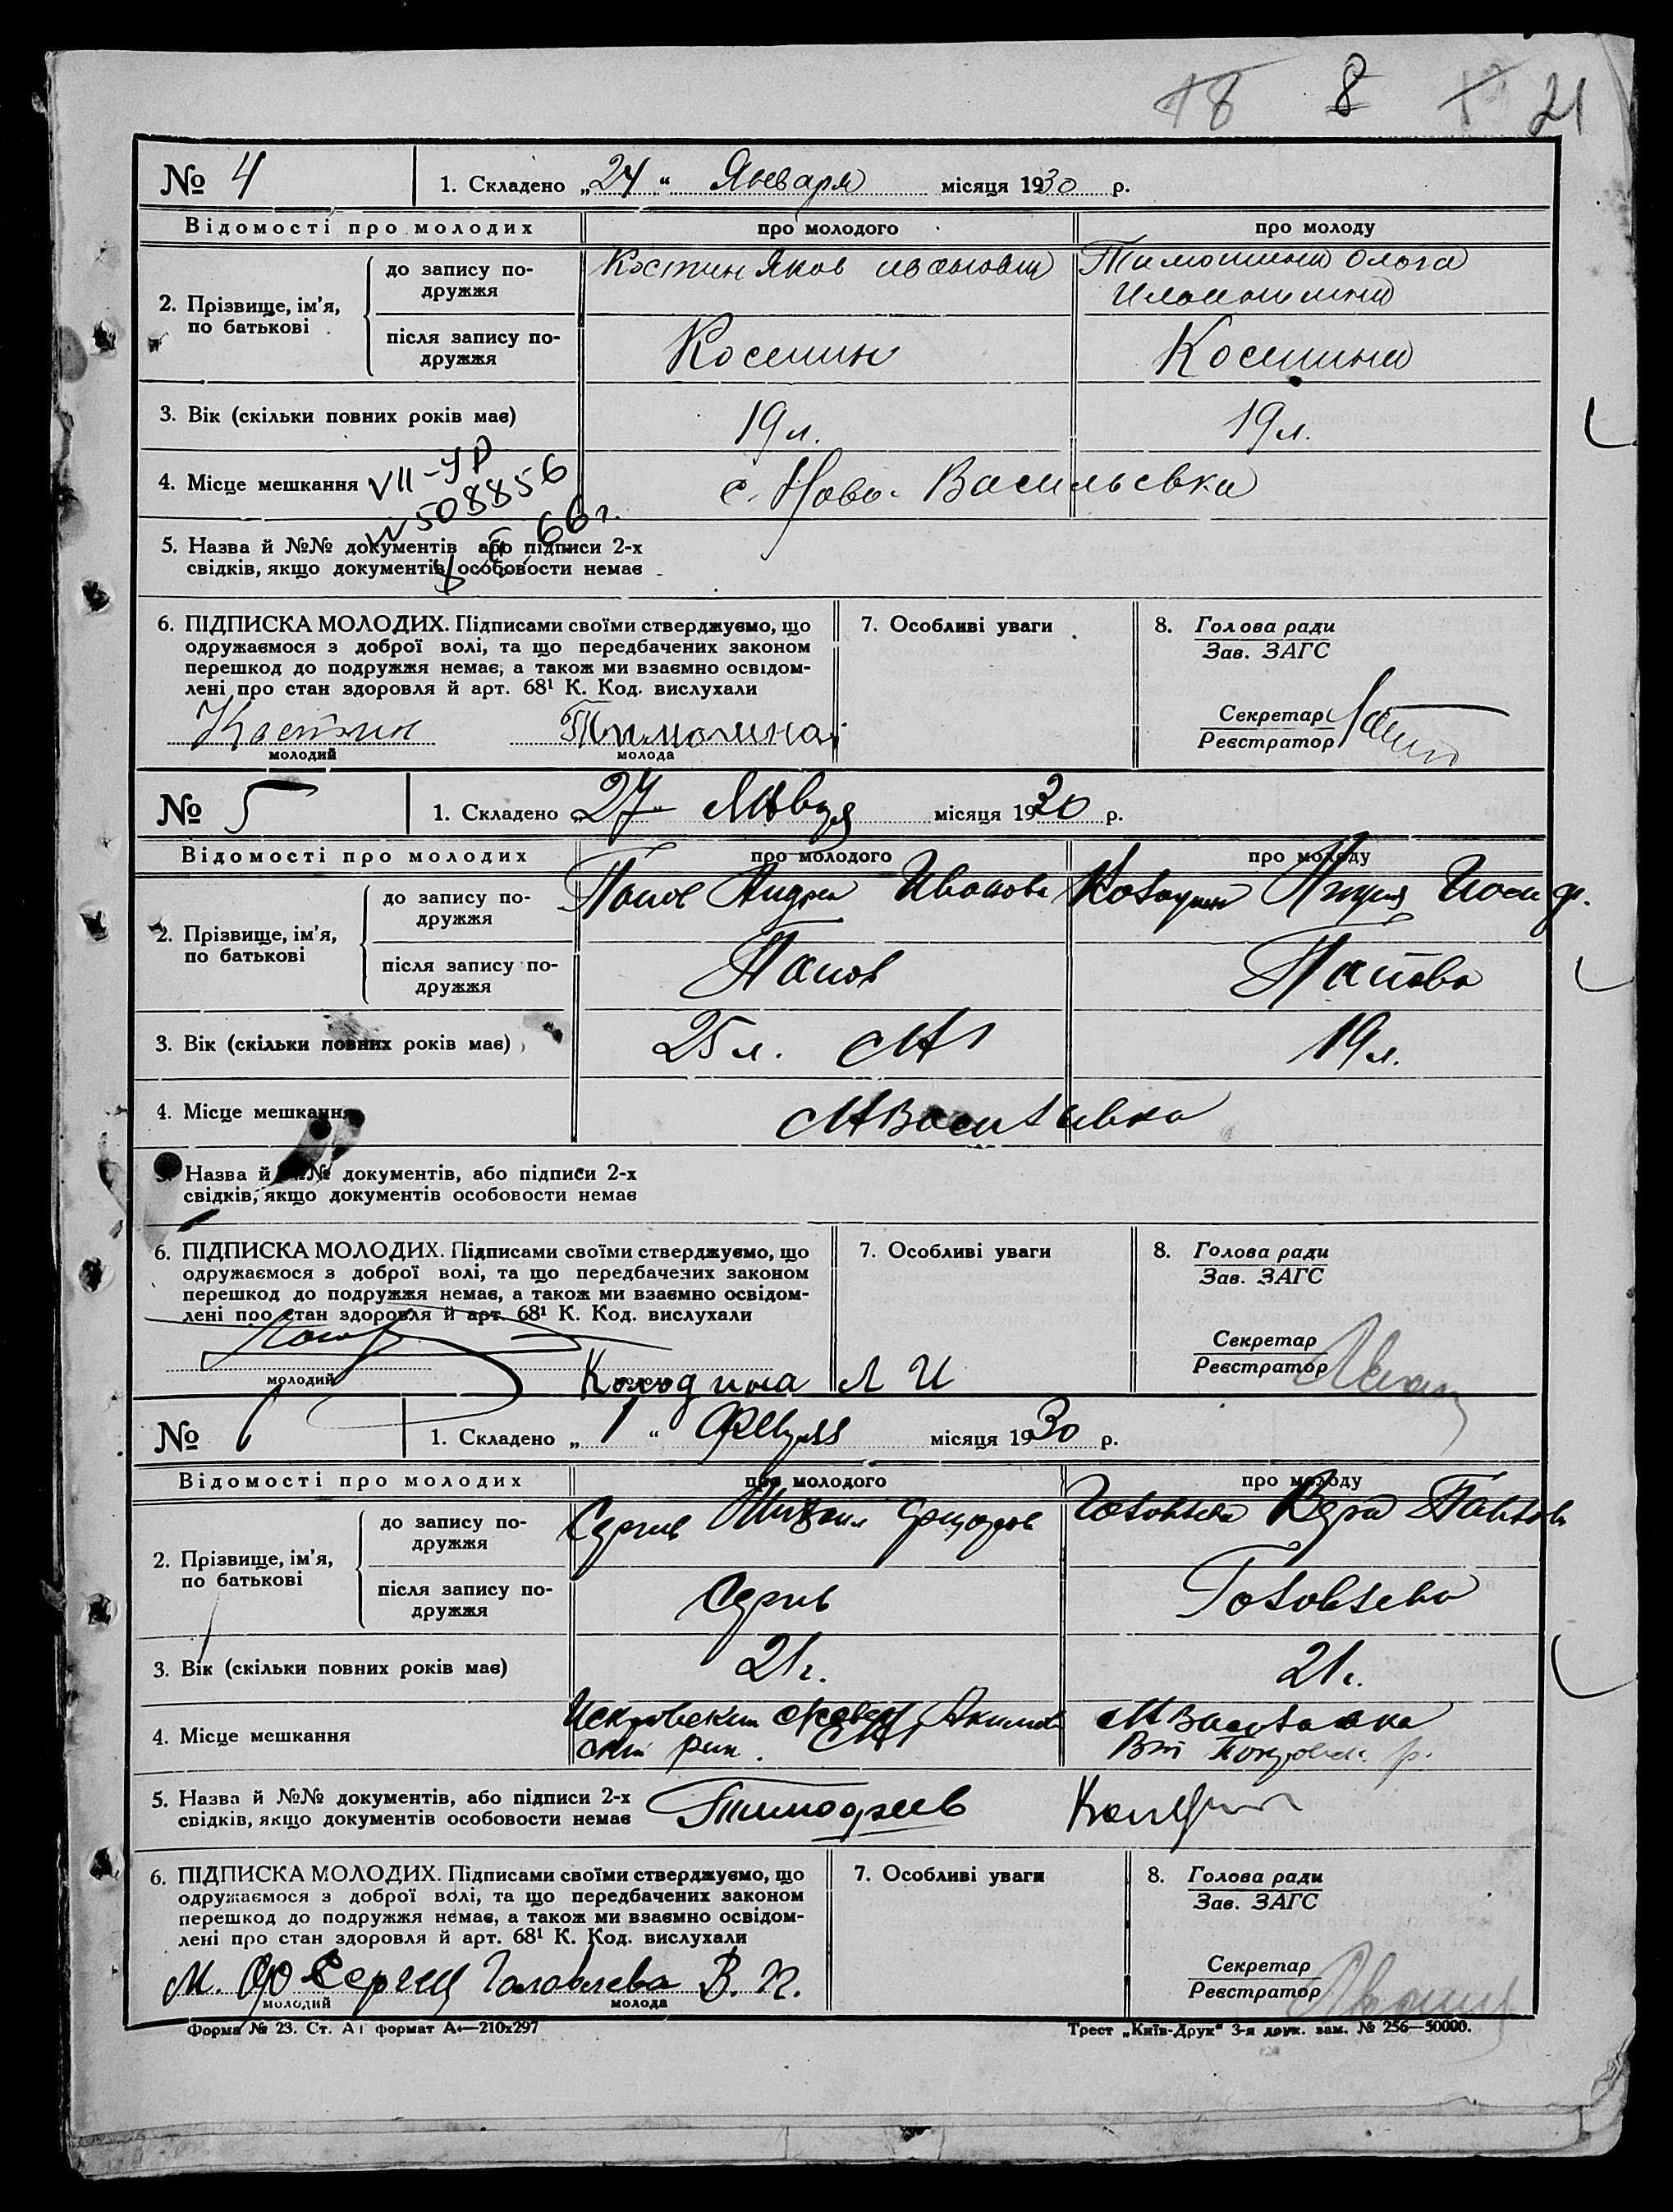 18 8 21
№ 4 1. Складено „24“ Января місяця 1930 р.
Відомості про молодих про молодого про молоду
2. Прізвище, ім’я, по батькові
до запису по-
дружжя
Костин Яков Тимошина
після запису по-
дружжя
Костин Костина
3. Вік (скільки повних років має) 19 л. 19 л.
4. Місце мешкання с. Ново-Васильевка
VII-УР
№ 508856
66 г.
5. Назва й №№ документів або підписи 2-х
свідків, якщо документів особовости немає
6. ПІДПИСКА МОЛОДИХ. Підписами своїми стверджуємо, що
одружаємося з доброї волі, та що передбачених законом
перешкод до подружжя немає, а також ми взаємно освідом-
лені про стан здоровля й арт. 68¹ К. Код. вислухали
Костин Тимошина
молодий молода
7. Особливі уваги
8. Голова ради
Зав. ЗАГС
Секретар
Реєстратор
№ 5 1. Складено „27“ Января місяця 1930 р.
Відомості про молодих про молодого про молоду
2. Прізвище, ім’я, по батькові
до запису по-
дружжя
Попов Андрей Иванов
після запису по-
дружжя
Попов Попова
3. Вік (скільки повних років має) 25 л. 19 л.
4. Місце мешкання НВасильевка
5. Назва й №№ документів, або підписи 2-х
свідків, якщо документів особовости немає
6. ПІДПИСКА МОЛОДИХ. Підписами своїми стверджуємо, що
одружаємося з доброї волі, та що передбачених законом
перешкод до подружжя немає, а також ми взаємно освідом-
лені про стан здоровля й арт. 68¹ К. Код. вислухали
Колодина Л И
молодий
7. Особливі уваги
8. Голова ради
Зав. ЗАГС
Секретар
Реєстратор
№ 6 1. Складено „1“ Февраля місяця 1930 р.
Відомості про молодих про молодого про молоду
2. Прізвище, ім’я, по батькові
до запису по-
дружжя
Михаил Головлева Вера Павлов
після запису по-
дружжя
Головлева
3. Вік (скільки повних років має) 21 г. 21 г.
4. Місце мешкання НВасильевка
5. Назва й №№ документів, або підписи 2-х
свідків, якщо документів особовости немає
Тимофеев
6. ПІДПИСКА МОЛОДИХ. Підписами своїми стверджуємо, що
одружаємося з доброї волі, та що передбачених законом
перешкод до подружжя немає, а також ми взаємно освідом-
лені про стан здоровля й арт. 68¹ К. Код. вислухали
М. Ф Головлева В. П.
молодий молода
7. Особливі уваги
8. Голова ради
Зав. ЗАГС
Секретар
Реєстратор
Форма № 23. Ст. А1 формат А4—210х297
Трест „Київ-Друк“ 3-я друк. зам. № 256—50000.